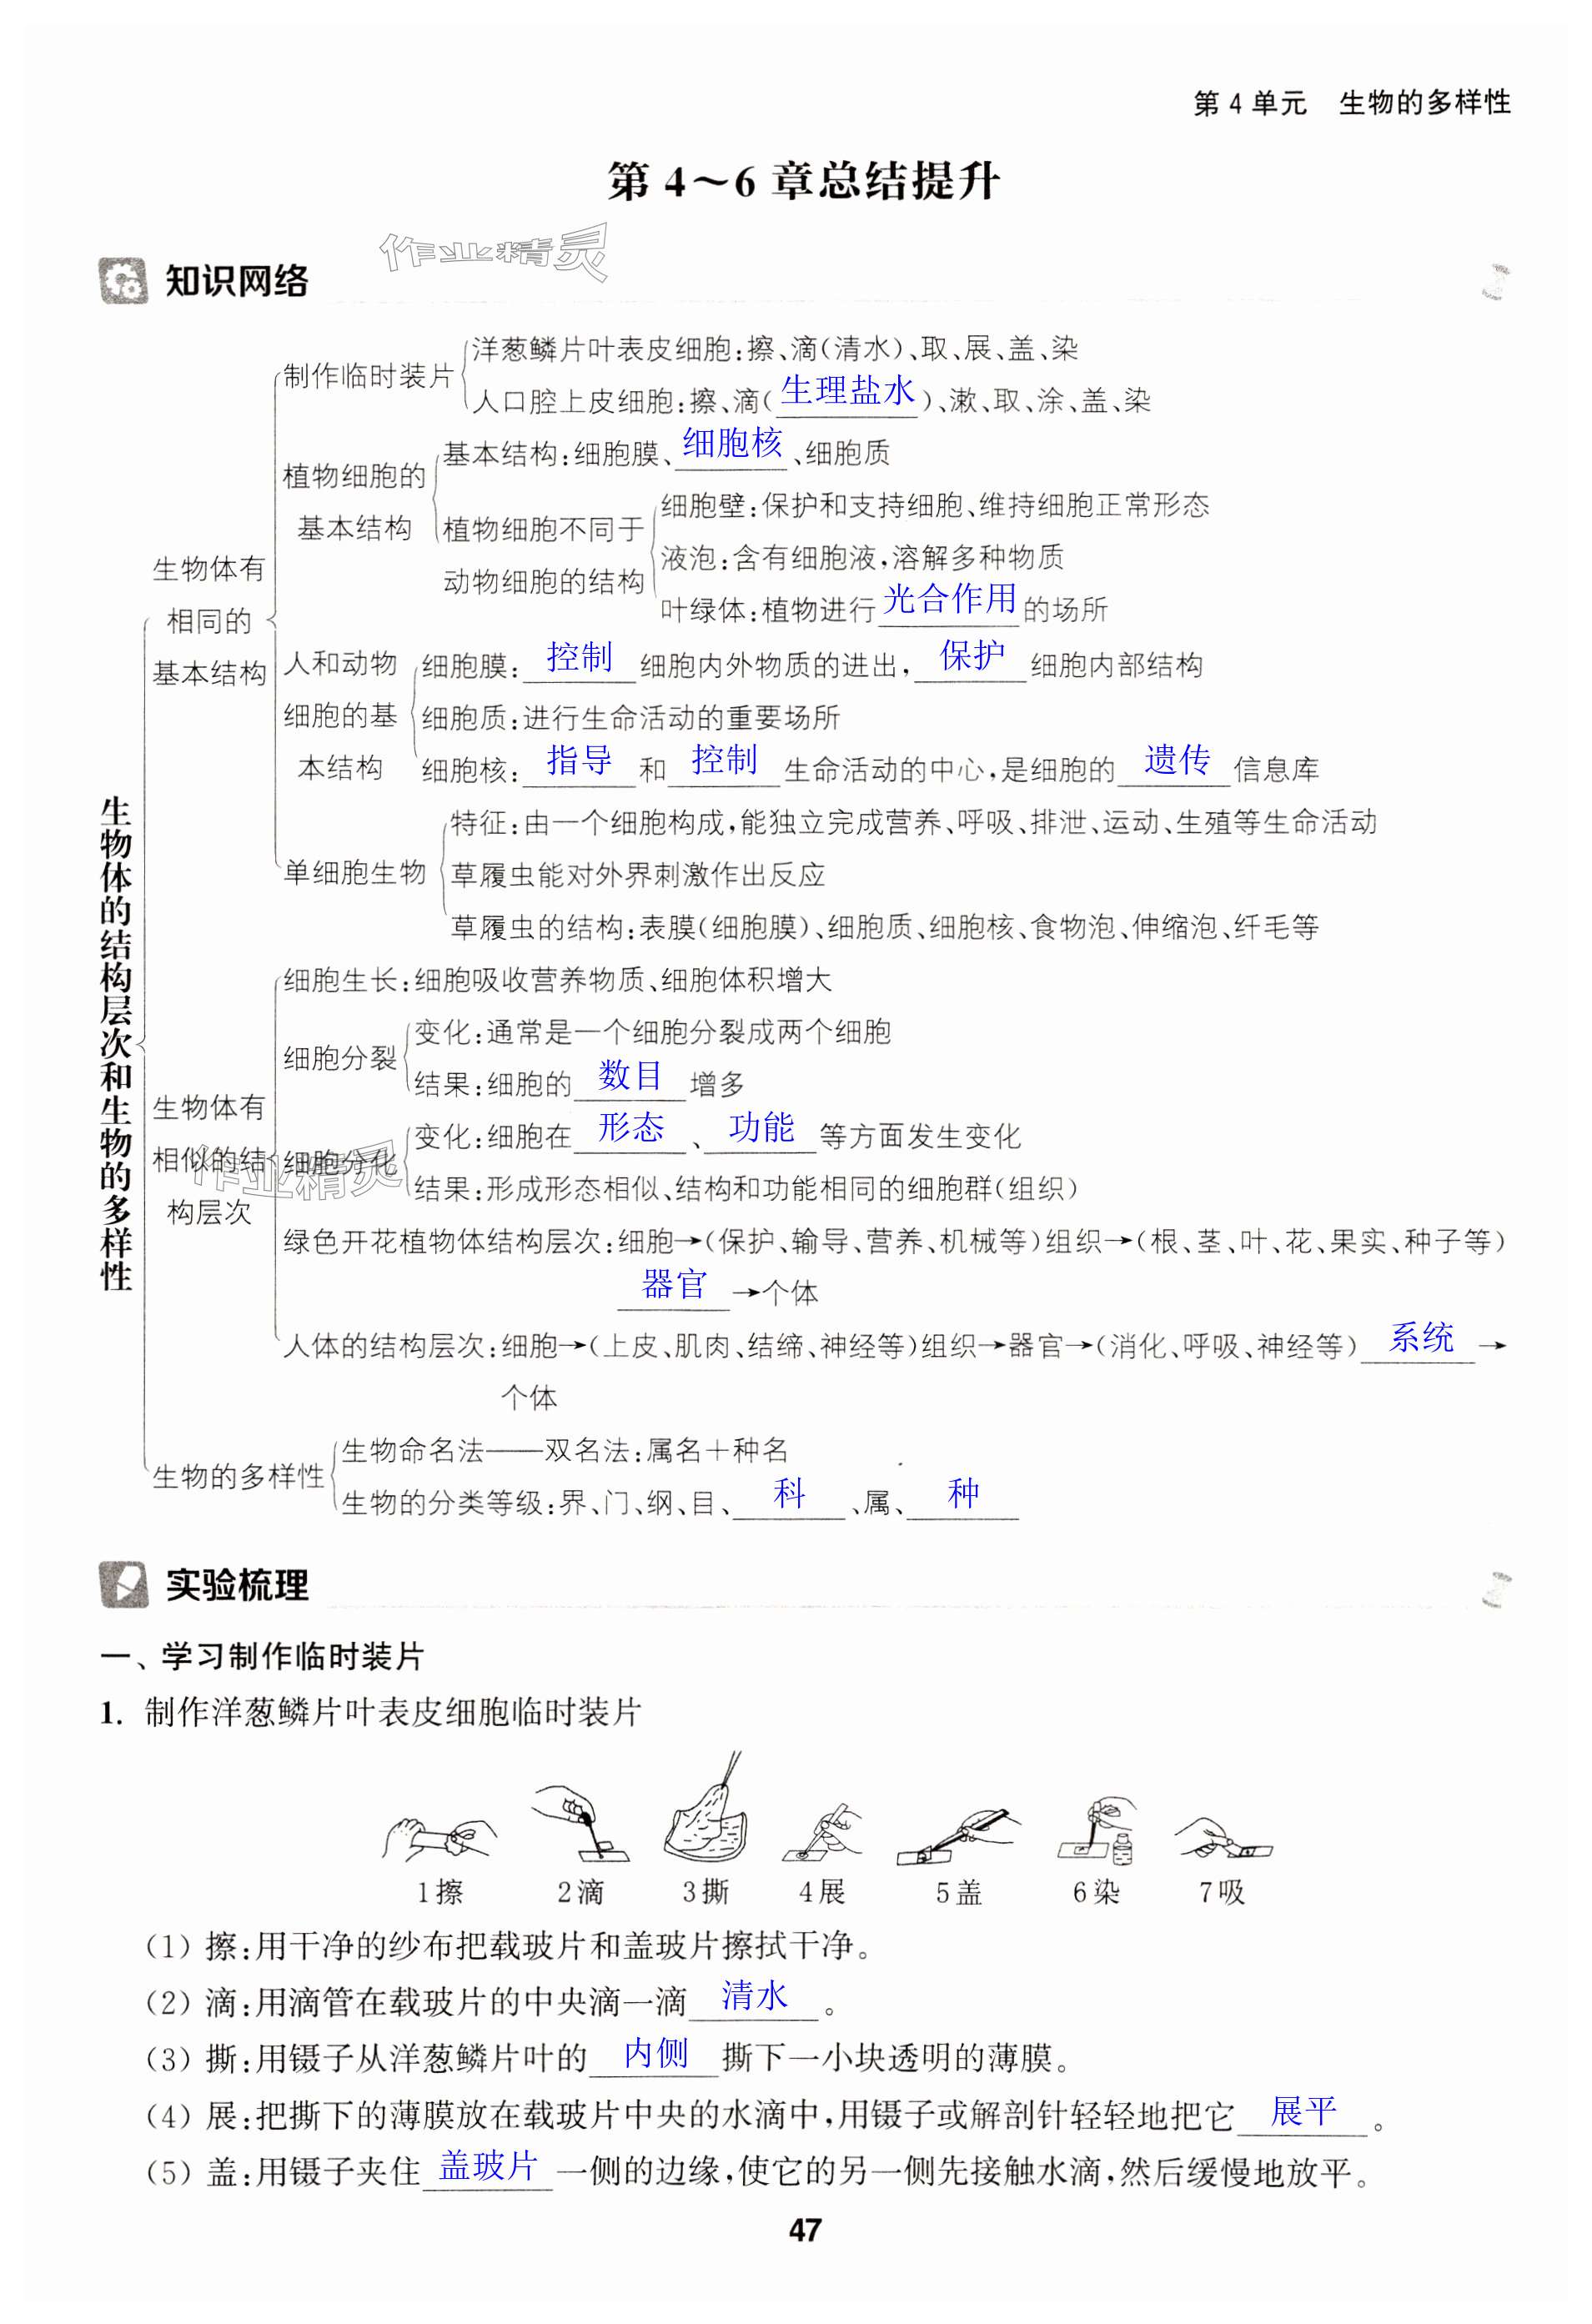 第 4 单元　生物的多样性
第 4～6 章总结提升
作业精灵
知识网络
洋葱鳞片叶表皮细胞:擦、滴(清水)、取、展、盖、染
制作临时装片
人口腔上皮细胞:擦、滴(生理盐水)、漱、取、涂、盖、染
基本结构:细胞膜、细胞核、细胞质
植物细胞的
基本结构
细胞壁:保护和支持细胞、维持细胞正常形态
植物细胞不同于
动物细胞的结构
液泡:含有细胞液,溶解多种物质
叶绿体:植物进行光合作用的场所
生物体有
相同的
基本结构
人和动物
细胞的基
本结构
细胞膜:控制细胞内外物质的进出,保护细胞内部结构
细胞质:进行生命活动的重要场所
细胞核:指导和控制生命活动的中心,是细胞的遗传信息库
特征:由一个细胞构成,能独立完成营养、呼吸、排泄、运动、生殖等生命活动
单细胞生物
草履虫能对外界刺激作出反应
草履虫的结构:表膜(细胞膜)、细胞质、细胞核、食物泡、伸缩泡、纤毛等
生物体的结构层次和生物的多样性
细胞生长:细胞吸收营养物质、细胞体积增大
变化:通常是一个细胞分裂成两个细胞
细胞分裂
结果:细胞的数目增多
生物体有
相似的结
构层次
变化:细胞在形态、功能等方面发生变化
细胞分化
作业精灵
结果:形成形态相似、结构和功能相同的细胞群(组织)
绿色开花植物体结构层次:细胞→(保护、输导、营养、机械等)组织→(根、茎、叶、花、果实、种子等)
器官→个体
人体的结构层次:细胞→(上皮、肌肉、结缔、神经等)组织→器官→(消化、呼吸、神经等)系统→
个体
生物命名法——双名法:属名+种名
生物的多样性
生物的分类等级:界、门、纲、目、科、属、种
实验梳理
一、学习制作临时装片
1. 制作洋葱鳞片叶表皮细胞临时装片
1擦 2滴 3撕 4展 5盖 6染 7吸
(1) 擦:用干净的纱布把载玻片和盖玻片擦拭干净。
(2) 滴:用滴管在载玻片的中央滴一滴清水。
(3) 撕:用镊子从洋葱鳞片叶的内侧撕下一小块透明的薄膜。
(4) 展:把撕下的薄膜放在载玻片中央的水滴中,用镊子或解剖针轻轻地把它展平。
(5) 盖:用镊子夹住盖玻片一侧的边缘,使它的另一侧先接触水滴,然后缓慢地放平。
47